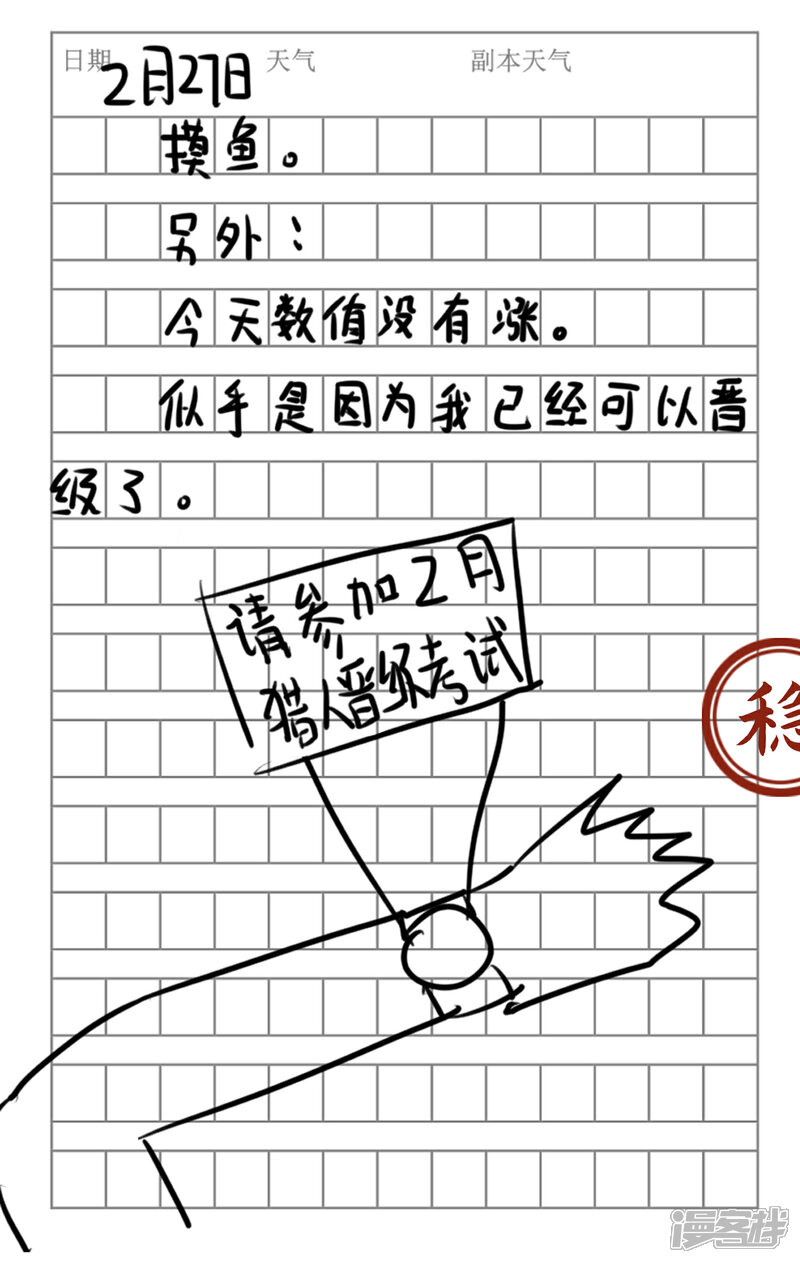 日期 2月27日 天气 副本天气
摸鱼。
另外：
今天数值没有涨。
似乎是因为我已经可以晋
级了。
请参加2月
猎人晋级考试
稳
漫客栈